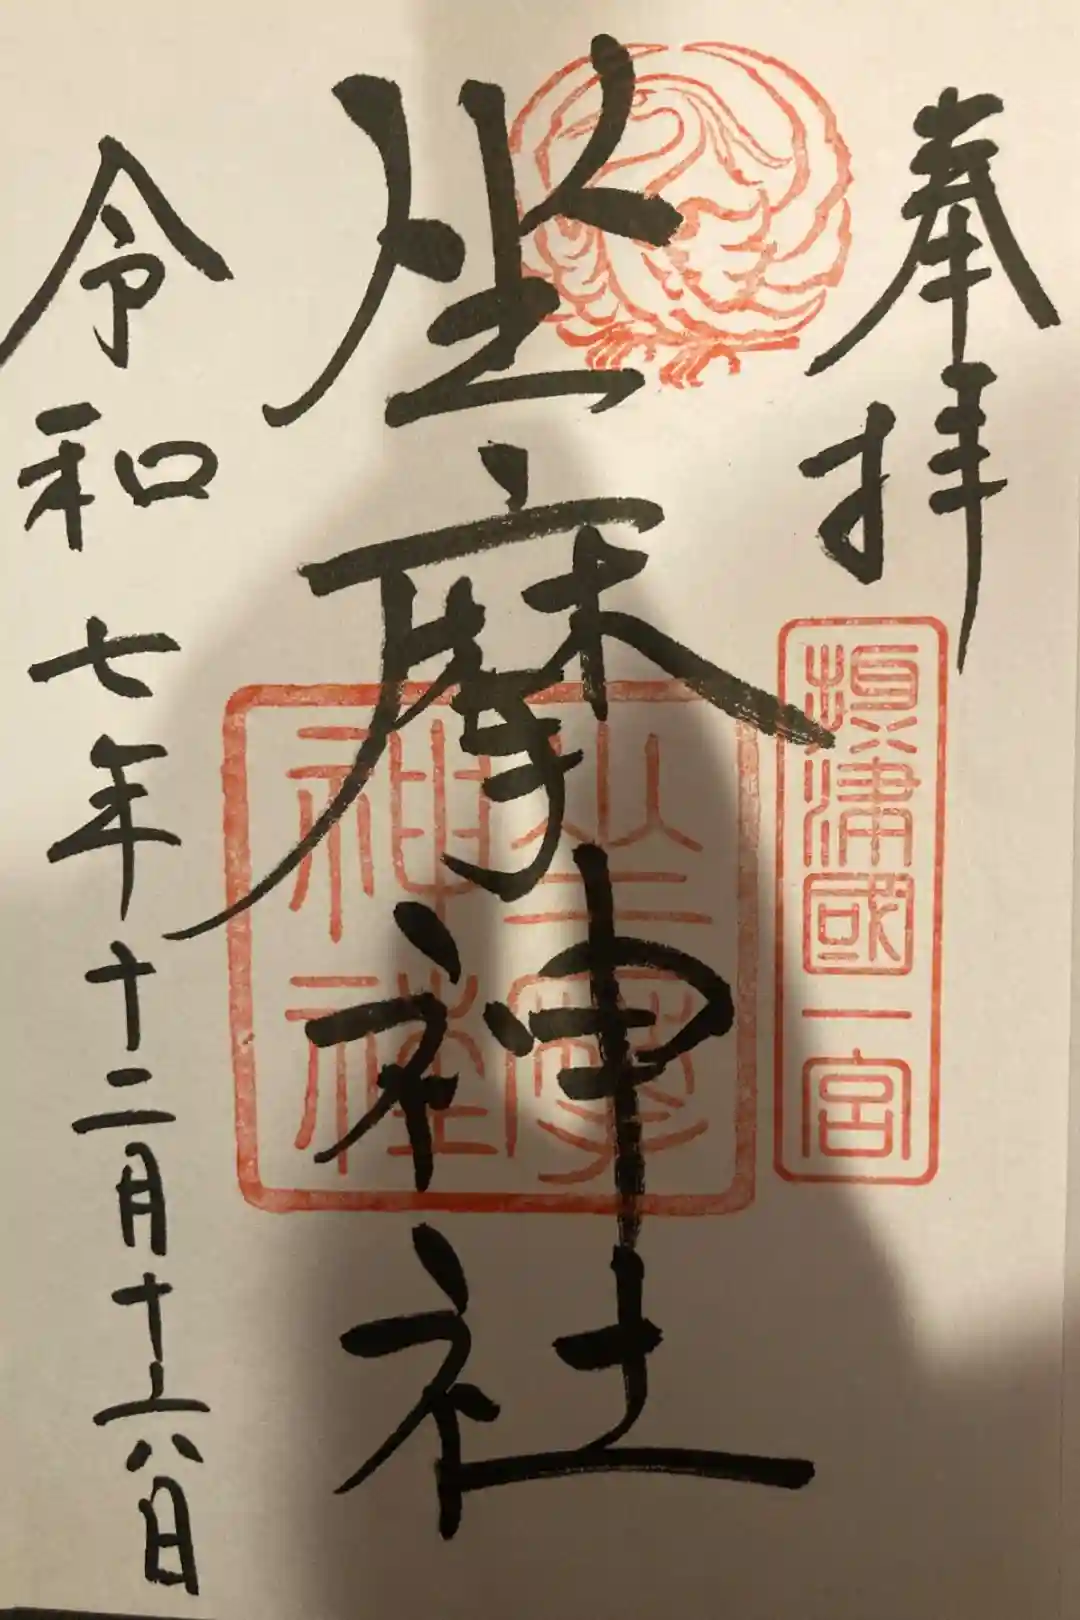 奉拝
攝津國一宮
坐摩神社
坐摩神社
令和七年十二月十六日